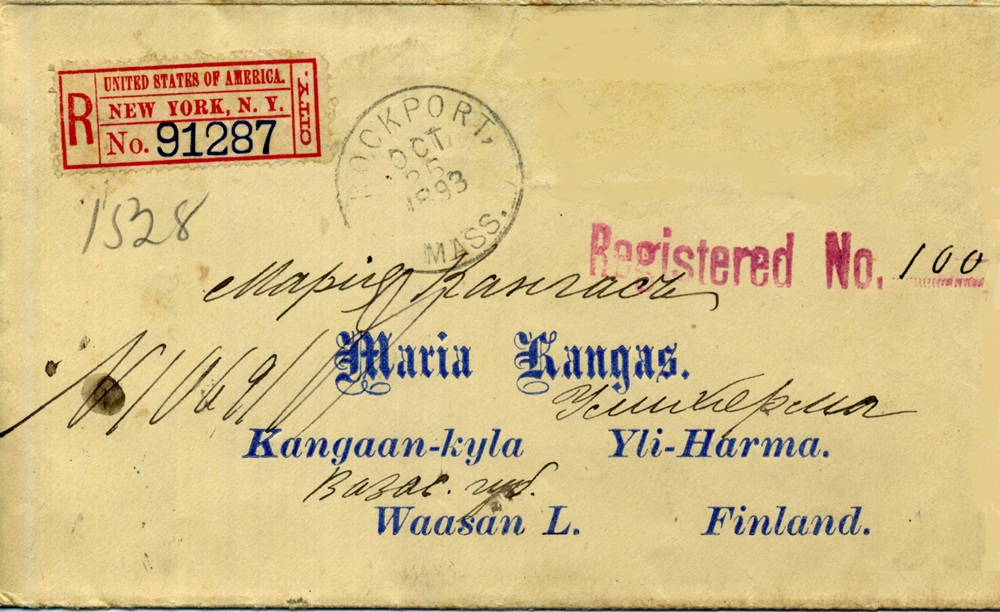 R
UNITED STATES OF AMERICA.
NEW YORK, N. Y.
No. 91287
ROCKPORT,
OCT
25
1893
MASS.
1528
Registered No. 100
Мария Кангасъ
Maria Kangas.
Kangaan-kyla Yli-Harma.
Вазас. губ.
Waasan L. Finland.